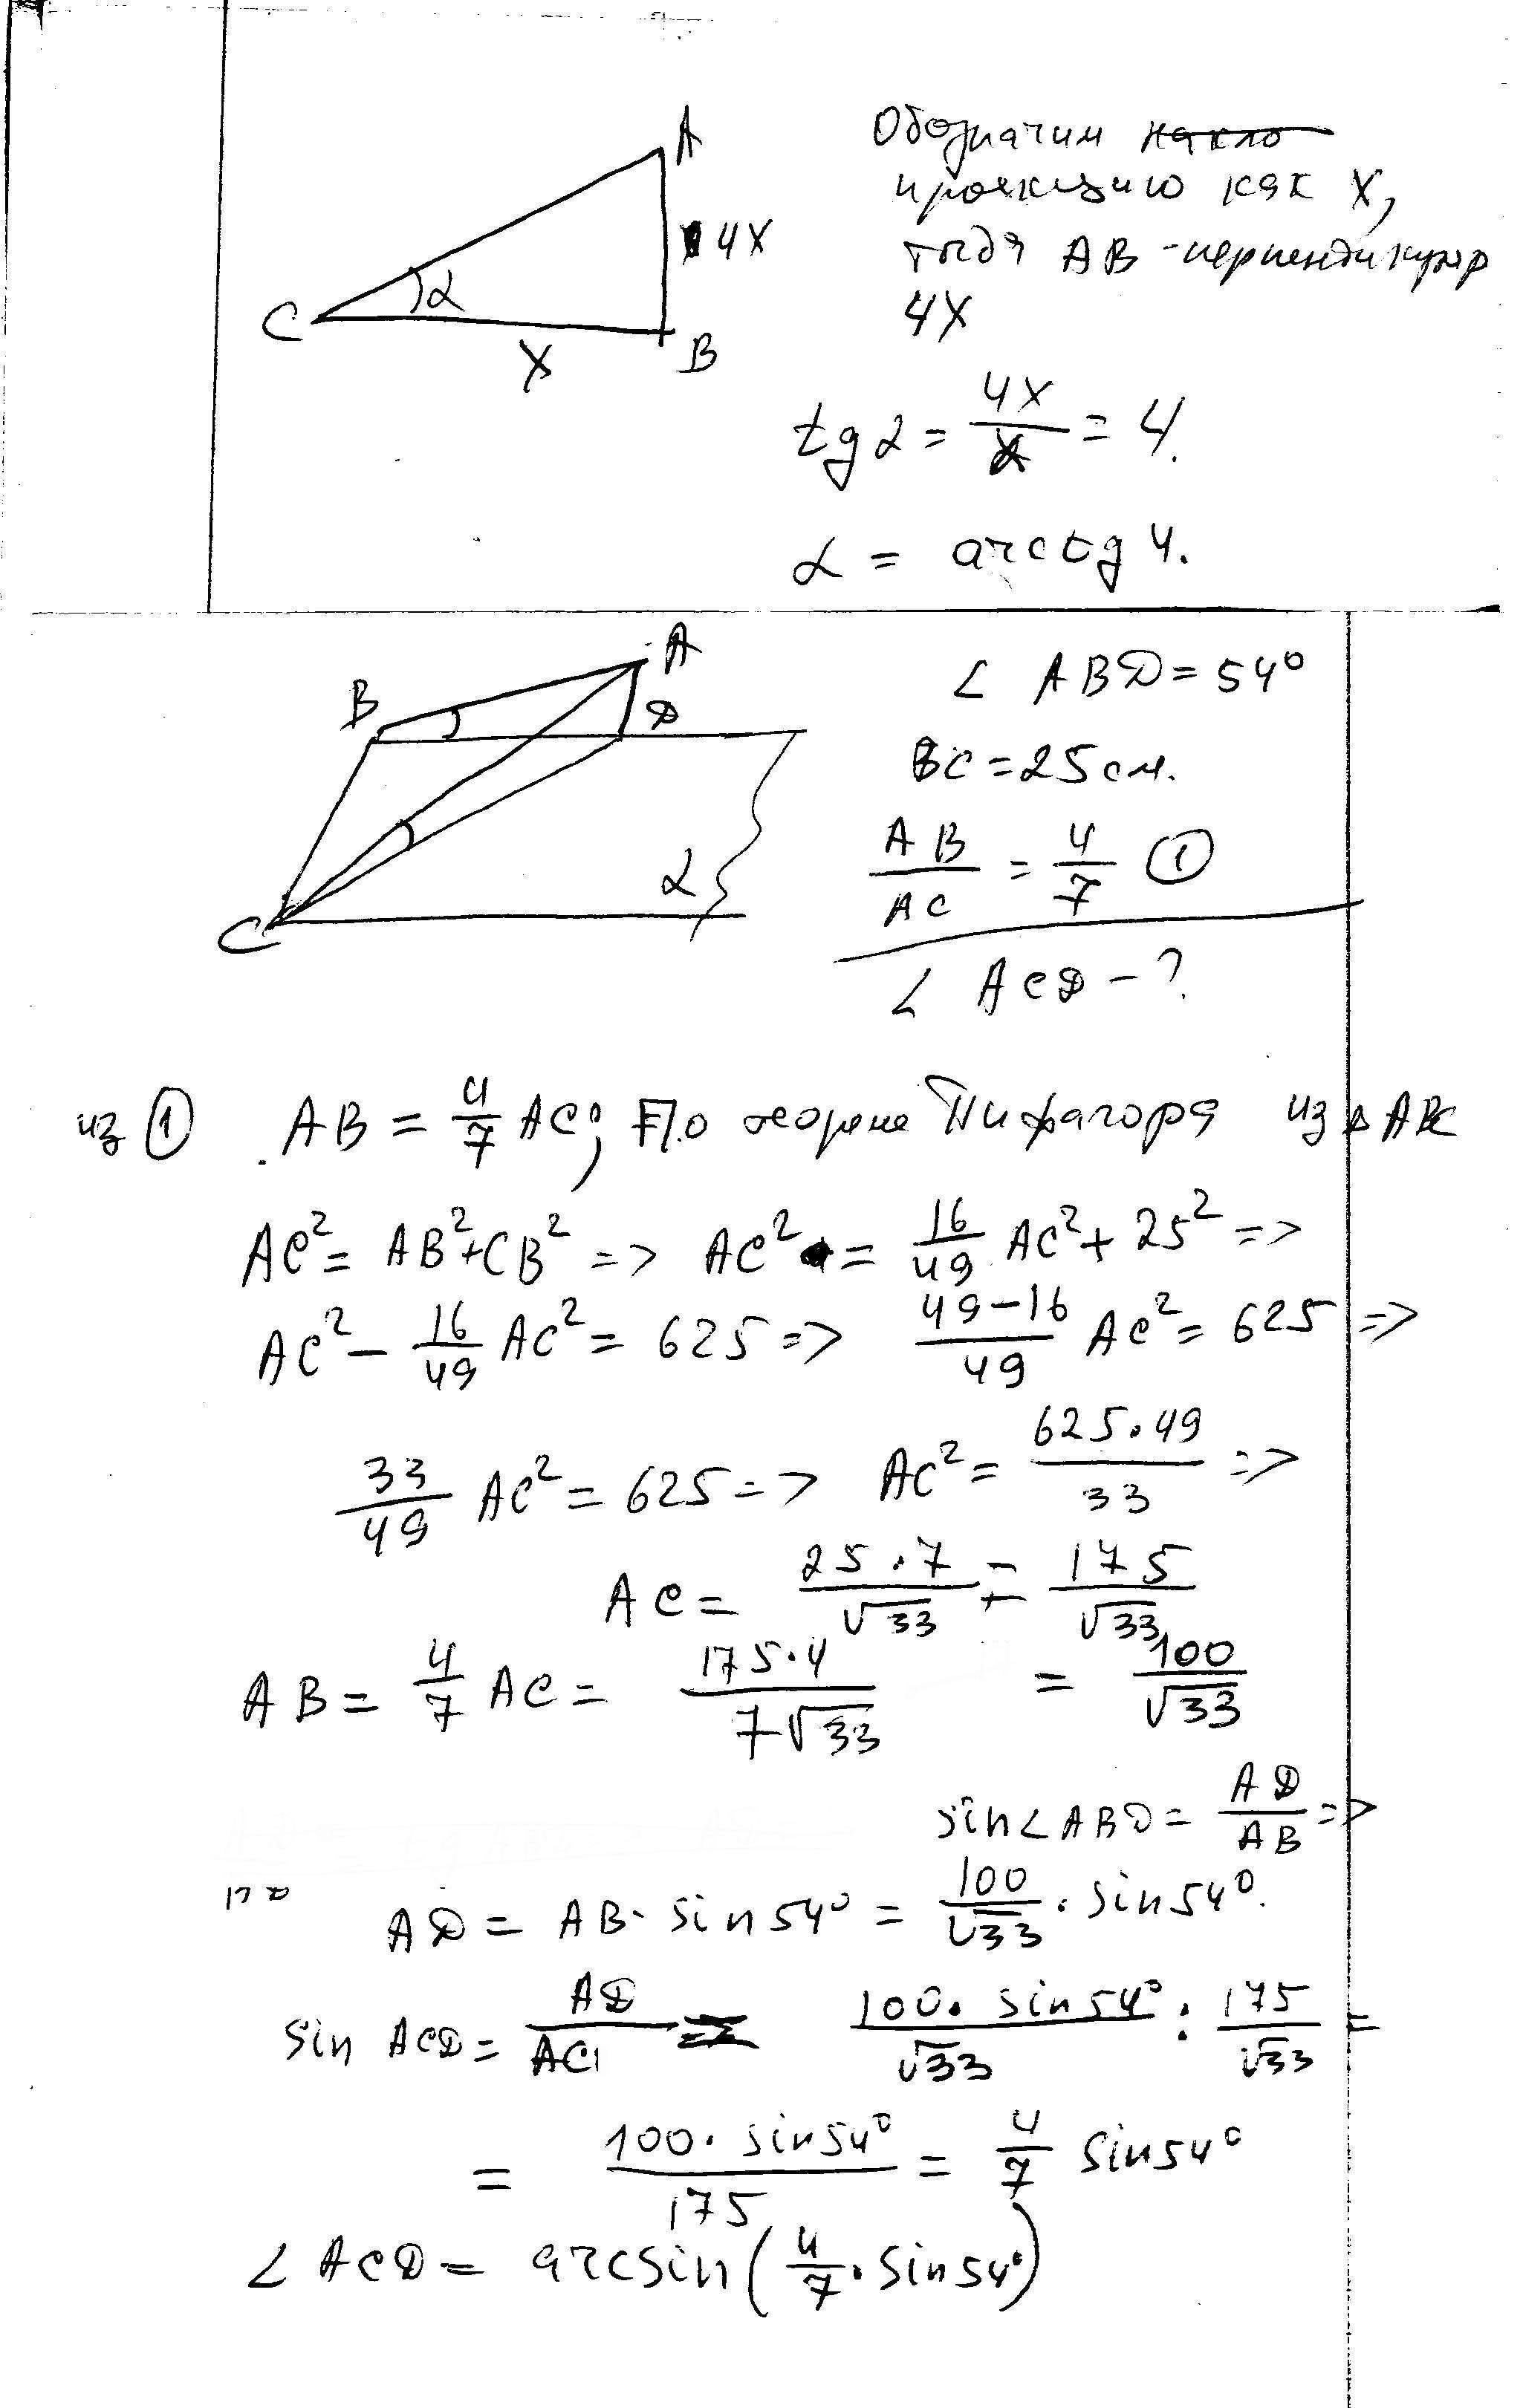 Обозначим накло
проекцию как X,
тогда AB - перпендикуляр
4X
A
4X
α
C
X
B
tg α = 4X/X = 4.
α = arctg 4.
A
B
D
α
C
∠ ABD = 54°
BC = 25 см.
AB/AC = 4/7 ①
∠ ACD - ?
из ① AB = 4/7 AC; По теореме Пифагора из Δ ABC
AC² = AB² + CB² => AC² = 16/49 AC² + 25² =>
AC² - 16/49 AC² = 625 => (49-16)/49 AC² = 625 =>
33/49 AC² = 625 => AC² = 625·49/33 =>
AC = 25·7/√33 = 175/√33
AB = 4/7 AC = 175·4/7√33 = 100/√33
sin∠ABD = AD/AB =>
AD = AB · sin 54° = 100/√33 · sin 54°.
sin ACD = AD/AC = 100·sin 54°/√33 : 175/√33 =
= 100·sin 54°/175 = 4/7 sin 54°
∠ ACD = arcsin(4/7 · sin 54°)